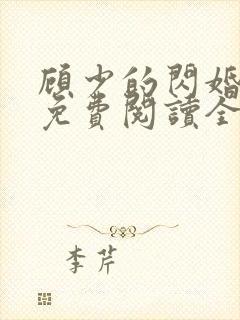 顾少的閃婚
免費閱讀全
李芹